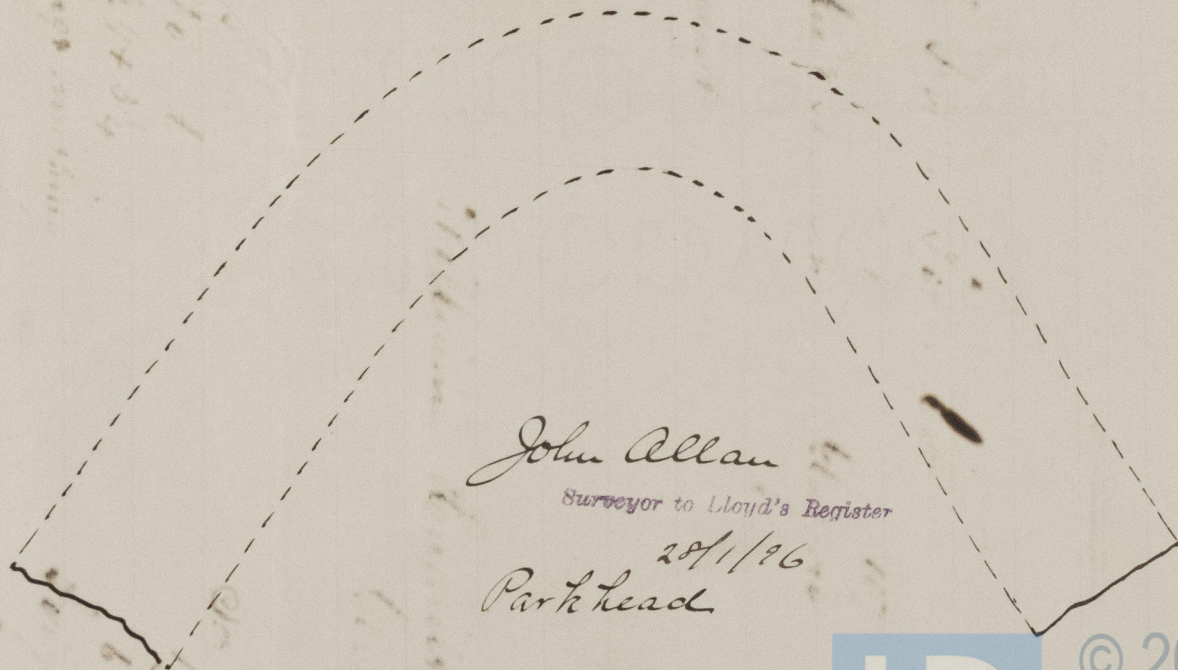 John Allan
Surveyor to Lloyd's Register
28/1/96
Parkhead
© 20